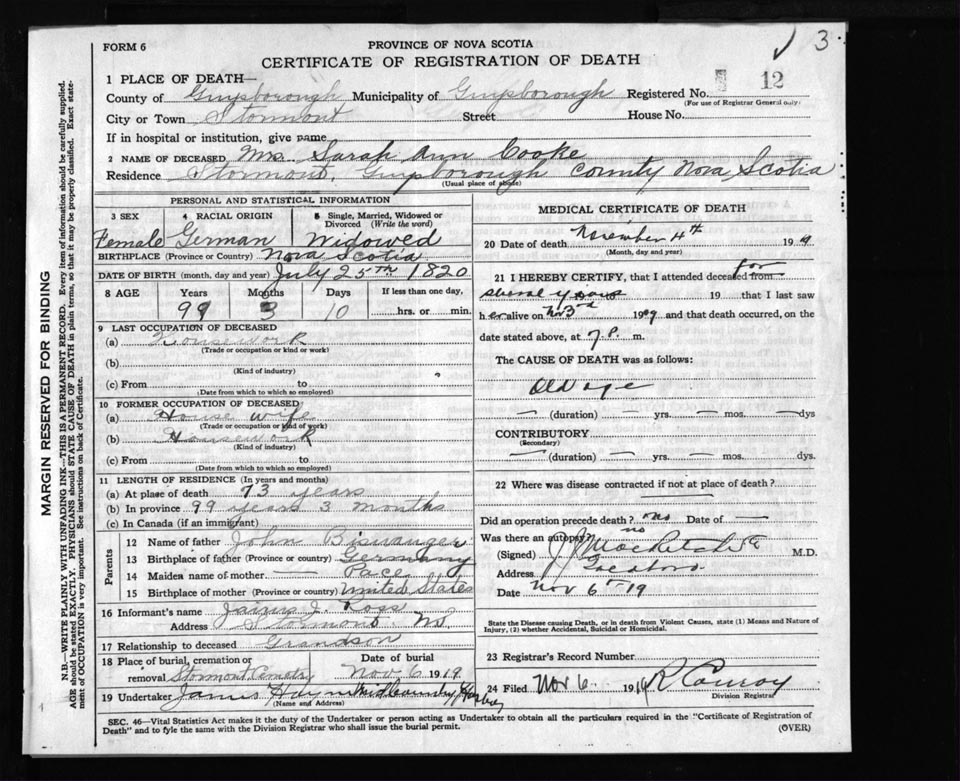 3
FORM 6
PROVINCE OF NOVA SCOTIA
CERTIFICATE OF REGISTRATION OF DEATH
12
1 PLACE OF DEATH—
County of Guysborough Municipality of Guysborough Registered No.
(For use of Registrar General only)
City or Town Stormont Street House No.
If in hospital or institution, give name
2 NAME OF DECEASED Mrs. Sarah Ann Cooke
Residence Stormont, Guysborough County Nova Scotia
(Usual place of abode)
PERSONAL AND STATISTICAL INFORMATION
3 SEX 4 RACIAL ORIGIN 5 Single, Married, Widowed or Divorced (Write the word)
Female German Widowed
BIRTHPLACE (Province or Country) Nova Scotia
DATE OF BIRTH (month, day and year) July 25th 1820
8 AGE Years Months Days If less than one day,
99 3 10 hrs. or min.
9 LAST OCCUPATION OF DECEASED
(a) Housework
(Trade or occupation or kind or work)
(b)
(Kind of industry)
(c) From to
(Date from which to which so employed)
10 FORMER OCCUPATION OF DECEASED
(a) House wife
(Trade or occupation or kind of work)
(b) Housework
(Kind of industry)
(c) From to
(Date from which to which so employed)
11 LENGTH OF RESIDENCE (In years and months)
(a) At place of death 73 years
(b) In province 99 years 3 months
(c) In Canada (if an immigrant)
Parents
12 Name of father John Biswanger
13 Birthplace of father (Province or country) Germany
14 Maiden name of mother — Pace
15 Birthplace of mother (Province or country) United States
16 Informant's name James J. Ross
Address Stormont NS
17 Relationship to deceased Grandson
18 Place of burial, cremation or removal Stormont Cemetry Date of burial Nov. 6 1919.
19 Undertaker James Hayn
(Name and Address)
MEDICAL CERTIFICATE OF DEATH
20 Date of death November 4th 1919
(Month, day and year)
21 I HEREBY CERTIFY, that I attended deceased from for
several years 19 that I last saw
her alive on Nov 3rd 1919 and that death occurred, on the
date stated above, at 7 P. m.
The CAUSE OF DEATH was as follows:
Old age
— (duration) — yrs. — mos. — dys
CONTRIBUTORY
(Secondary)
— (duration) — yrs. — mos. dys.
22 Where was disease contracted if not at place of death?
Did an operation precede death? No Date of —
Was there an autopsy? no
(Signed) M.D.
Address
Date Nov 6th 19
State the Disease causing Death, or in death from Violent Causes, state (1) Means and Nature of
Injury, (2) whether Accidental, Suicidal or Homicidal.
23 Registrar's Record Number
24 Filed Nov 6 1919 R Conroy
Division Registrar
SEC. 46—Vital Statistics Act makes it the duty of the Undertaker or person acting as Undertaker to obtain all the particulars required in the "Certificate of Registration of
Death" and to fyle the same with the Division Registrar who shall issue the burial permit.
(OVER)
MARGIN RESERVED FOR BINDING
N.B.—WRITE PLAINLY WITH UNFADING INK—THIS IS A PERMANENT RECORD. Every item of information should be carefully supplied.
AGE should be stated EXACTLY. PHYSICIANS should STATE CAUSE OF DEATH in plain terms, so that it may be properly classified. Exact state-
ment of OCCUPATION is very important. See instructions on back of Certificate.